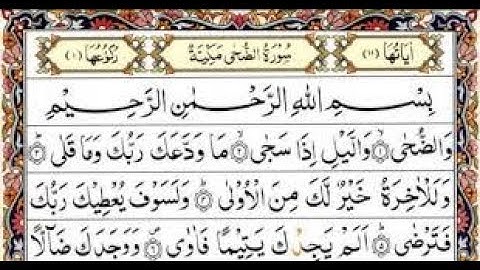 اٰيَاتُهَا (١١) سُوْرَةُ الضُّحٰى مَكِّيَّةٌ رُكُوْعُهَا (١)
بِسْمِ اللّٰهِ الرَّحْمٰنِ الرَّحِيْمِ
وَالضُّحٰىۙ ١ وَالَّيْلِ اِذَا سَجٰىۙ ٢ مَا وَدَّعَكَ رَبُّكَ وَمَا قَلٰىؕ ٣
وَلَلْاٰخِرَةُ خَيْرٌ لَّكَ مِنَ الْاُوْلٰىؕ ٤ وَلَسَوْفَ يُعْطِيْكَ رَبُّكَ
فَتَرْضٰىؕ ٥ اَلَمْ يَجِدْكَ يَتِيْمًا فَاٰوٰى ٦ وَوَجَدَكَ ضَآلًّا